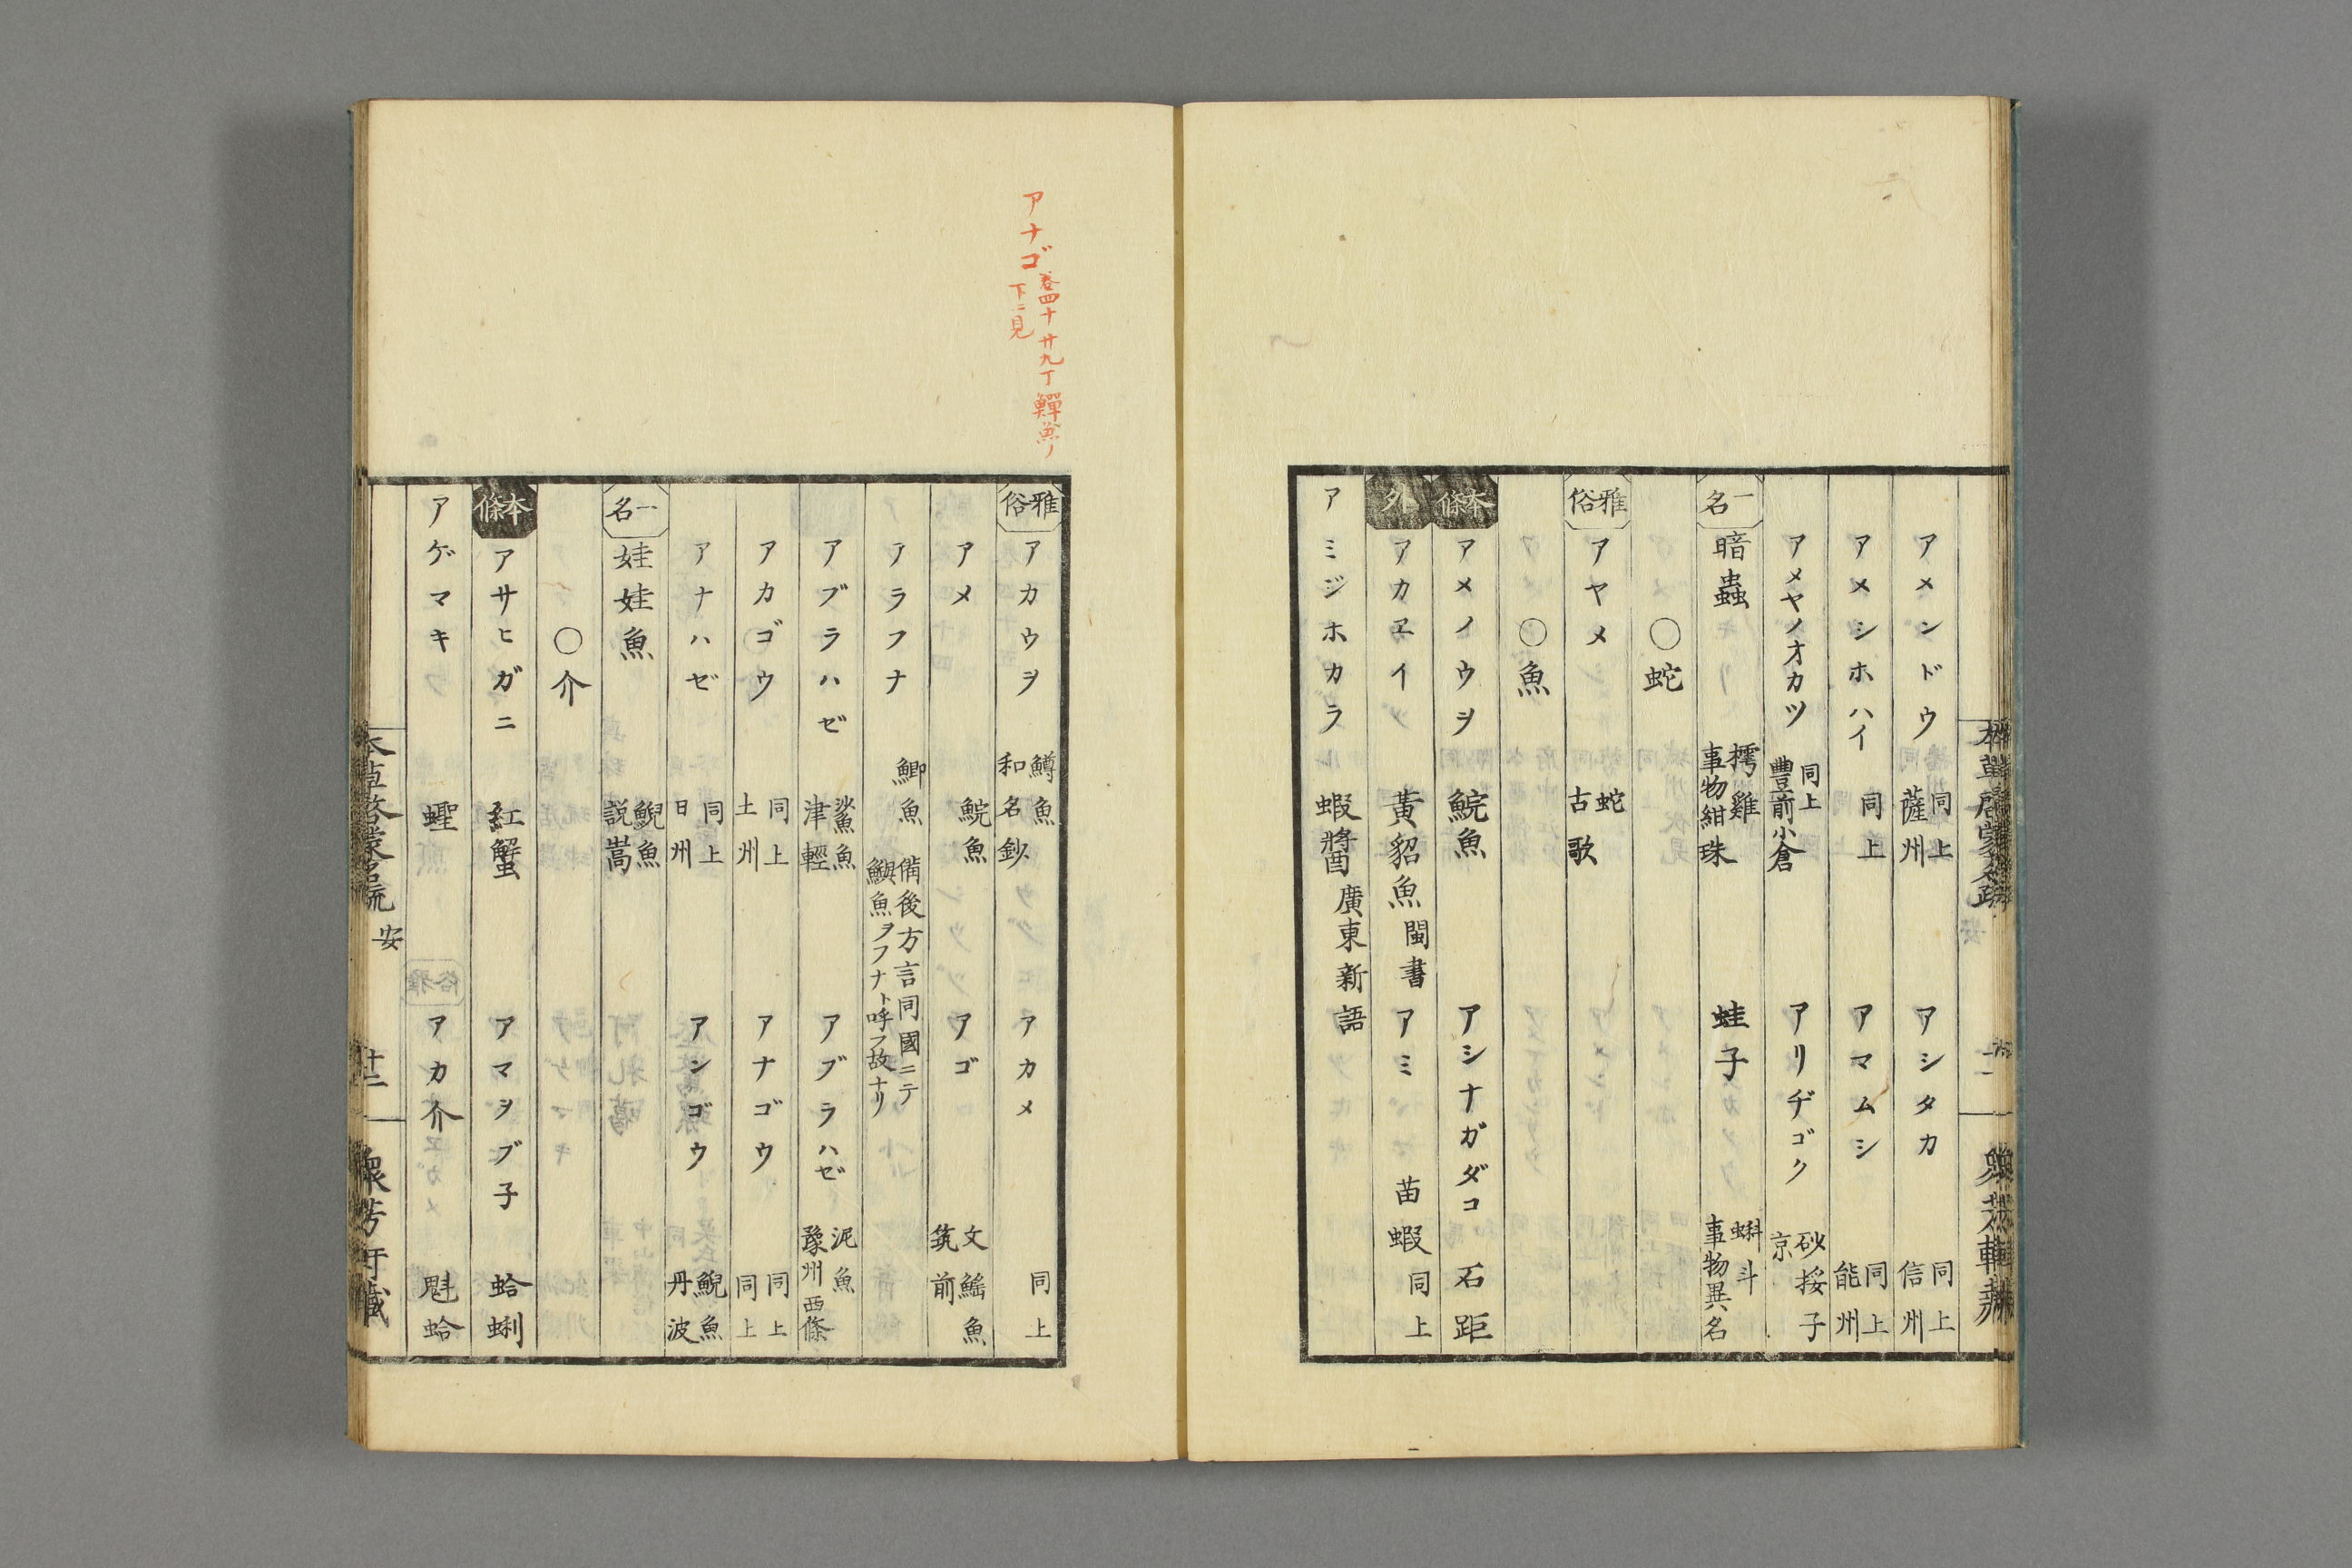 アメンドウ 同上 薩州 アシタカ 同上 信州
アメシホハイ 同上 アマムシ 同上 能州
アメヤノオカツ 同上 豊前小倉 アリヂゴク 砂挼子 京
一名 暗蟲 樗雞 事物紺珠 蛙子 蝌斗 事物異名
○蛇
雅俗 アヤメ 蛇 古歌
○魚
本條 アメノウヲ 鯇魚 アシナガダコ 石距
外 アカヱイ 黃貂魚 閩書 アミ 苗蝦 同上
アミジホカラ 蝦醬 廣東新語
アナゴ 卷四十 廿九丁 鱓魚ノ
下ニ見
雅俗 アカウヲ 鱒魚 和名鈔 アカメ 同上
アメ 鯇魚 アゴ 文鰩魚 筑前
アラフナ 鯽魚 備後方言同國ニテ
魚ヲフナト呼フ故ナリ
アブラハゼ 鯊魚 津輕 アブラハゼ 泥魚 豫州西條
アカゴウ 同上 土州 アナゴウ 同上 同上
アナハゼ 同上 日州 アンゴウ 鯢魚 丹波
一名 娃娃魚 鯢魚 説嵩
○介
本條 アサヒガニ 紅蟹 アマヲブ子 蛤蜊
アゲマキ 蟶 アカ介 魁蛤
本草啓蒙名疏 安 十二